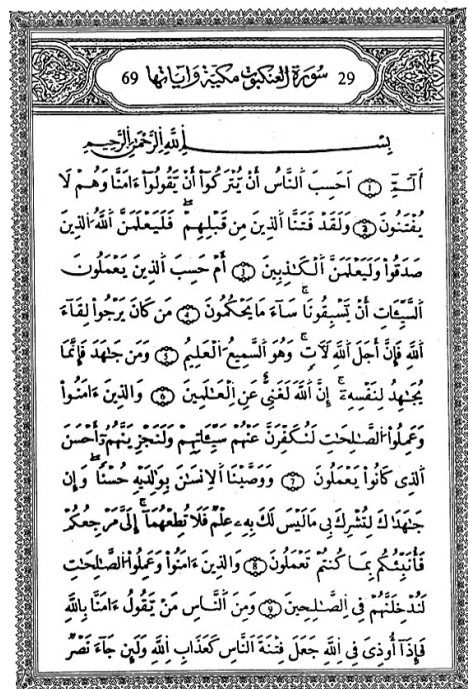 29 سورة العنكبوت مكية وآياتها 69
بِسْمِ اِللَّهِ اِلرَّحْمَٰنِ اِلرَّحِيمِ
أَلَٓمِّٓ ١ اَحَسِبَ اَلنَّاسُ أَنْ يُّتْرَكُوٓا أَنْ يَّقُولُوٓا ءَامَنَّا وَهُمْ لَا
يُفْتَنُونَ ٢ وَلَقَدْ فَتَنَّا اَلذِينَ مِن قَبْلِهِمْ فَلَيَعْلَمَنَّ اَللَّهُ اُلذِينَ
صَدَقُوا وَلَيَعْلَمَنَّ اَلْكَٰذِبِينَ ٣ أَمْ حَسِبَ اَلذِينَ يَعْمَلُونَ
اَلسَّيِّـَٔاتِ أَنْ يَّسْبِقُونَا سَآءَ مَا يَحْكُمُونَ ٤ مَن كَانَ يَرْجُوا لِقَآءَ
اَللَّهِ فَإِنَّ أَجَلَ اَللَّهِ لَأٓتٍ وَهُوَ اَلسَّمِيعُ اُلْعَلِيمُ ٥ وَمَن جَٰهَدَ فَإِنَّمَا
يُجَٰهِدُ لِنَفْسِهِۦٓ إِنَّ اَللَّهَ لَغَنِيٌّ عَنِ اِلْعَٰلَمِينَ ٦ وَالذِينَ ءَامَنُوا
وَعَمِلُوا اُلصَّٰلِحَٰتِ لَنُكَفِّرَنَّ عَنْهُمْ سَيِّـَٔاتِهِمْ وَلَنَجْزِيَنَّهُمُۥٓ أَحْسَنَ
اَلذِي كَانُوا يَعْمَلُونَ ٧ وَوَصَّيْنَا اَلْإِنسَٰنَ بِوَٰلِدَيْهِ حُسْنًا وَإِن
جَٰهَدَٰكَ لِتُشْرِكَ بِي مَا لَيْسَ لَكَ بِهِۦ عِلْمٌ فَلَا تُطِعْهُمَآ إِلَيَّ مَرْجِعُكُمْ
فَأُنَبِّئُكُم بِمَا كُنتُمْ تَعْمَلُونَ ٨ وَالذِينَ ءَامَنُوا وَعَمِلُوا اُلصَّٰلِحَٰتِ
لَنُدْخِلَنَّهُمْ فِي اِلصَّٰلِحِينَ ٩ وَمِنَ اَلنَّاسِ مَنْ يَّقُولُ ءَامَنَّا بِاللَّهِ
فَإِذَآ أُوذِيَ فِي اِللَّهِ جَعَلَ فِتْنَةَ اَلنَّاسِ كَعَذَابِ اِللَّهِ وَلَئِن جَآءَ نَصْرٌ